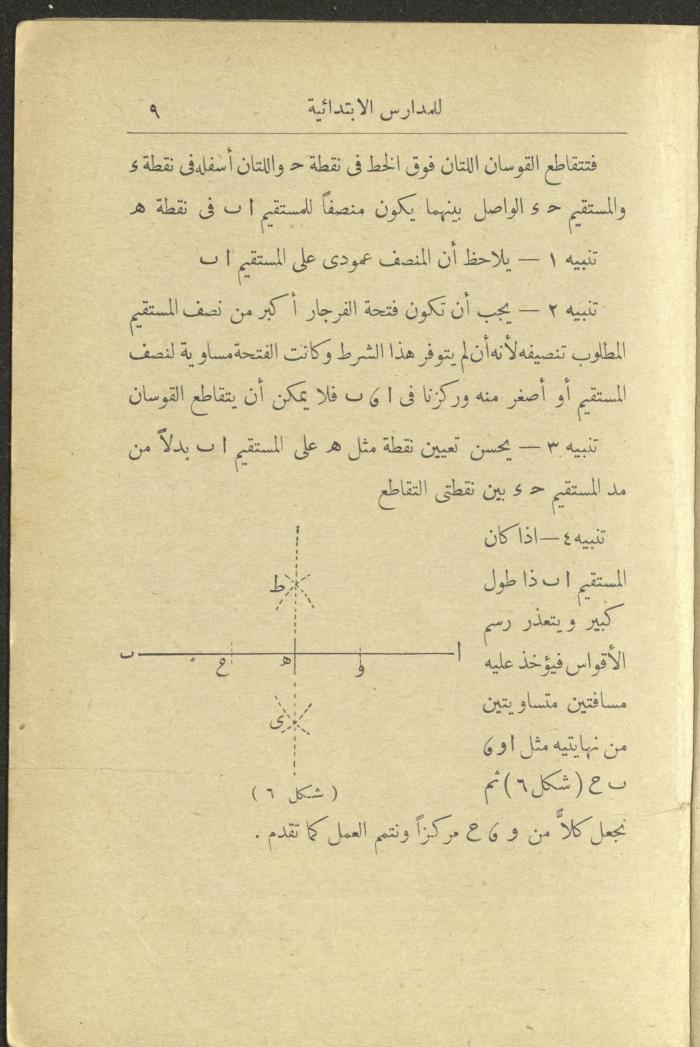 للمدارس الابتدائية ٩
فتتقاطع القوسان اللتان فوق الخط فى نقطة ح واللتان أسفله فى نقطة ء
والمستقيم ح ء الواصل بينهما يكون منصفاً للمستقيم ا ب فى نقطة ه
تنبيه ١ — يلاحظ أن المنصف عمودى على المستقيم ا ب
تنبيه ٢ — يجب أن تكون فتحة الفرجار أكبر من نصف المستقيم
المطلوب تنصيفه لأنه أن لم يتوفر هذا الشرط وكانت الفتحة مساوية لنصف
المستقيم أو أصغر منه وركزنا فى ا ى ب فلا يمكن أن يتقاطع القوسان
تنبيه ٣ — يحسن تعيين نقطة مثل ه على المستقيم ا ب بدلاً من
مد المستقيم ح ء بين نقطتى التقاطع
تنبيه ٤ — اذا كان
المستقيم ا ب ذا طول
كبير ويتعذر رسم
الأقواس فيؤخذ عليه
مسافتين متساويتين
من نهايتيه مثل ا و ى
ب ح (شكل ٦) ثم
نجعل كلاًّ من و ى ح مركزاً ونتمم العمل كما تقدم .
ط
ب ح ه و ا
ى
( شكل ٦ )